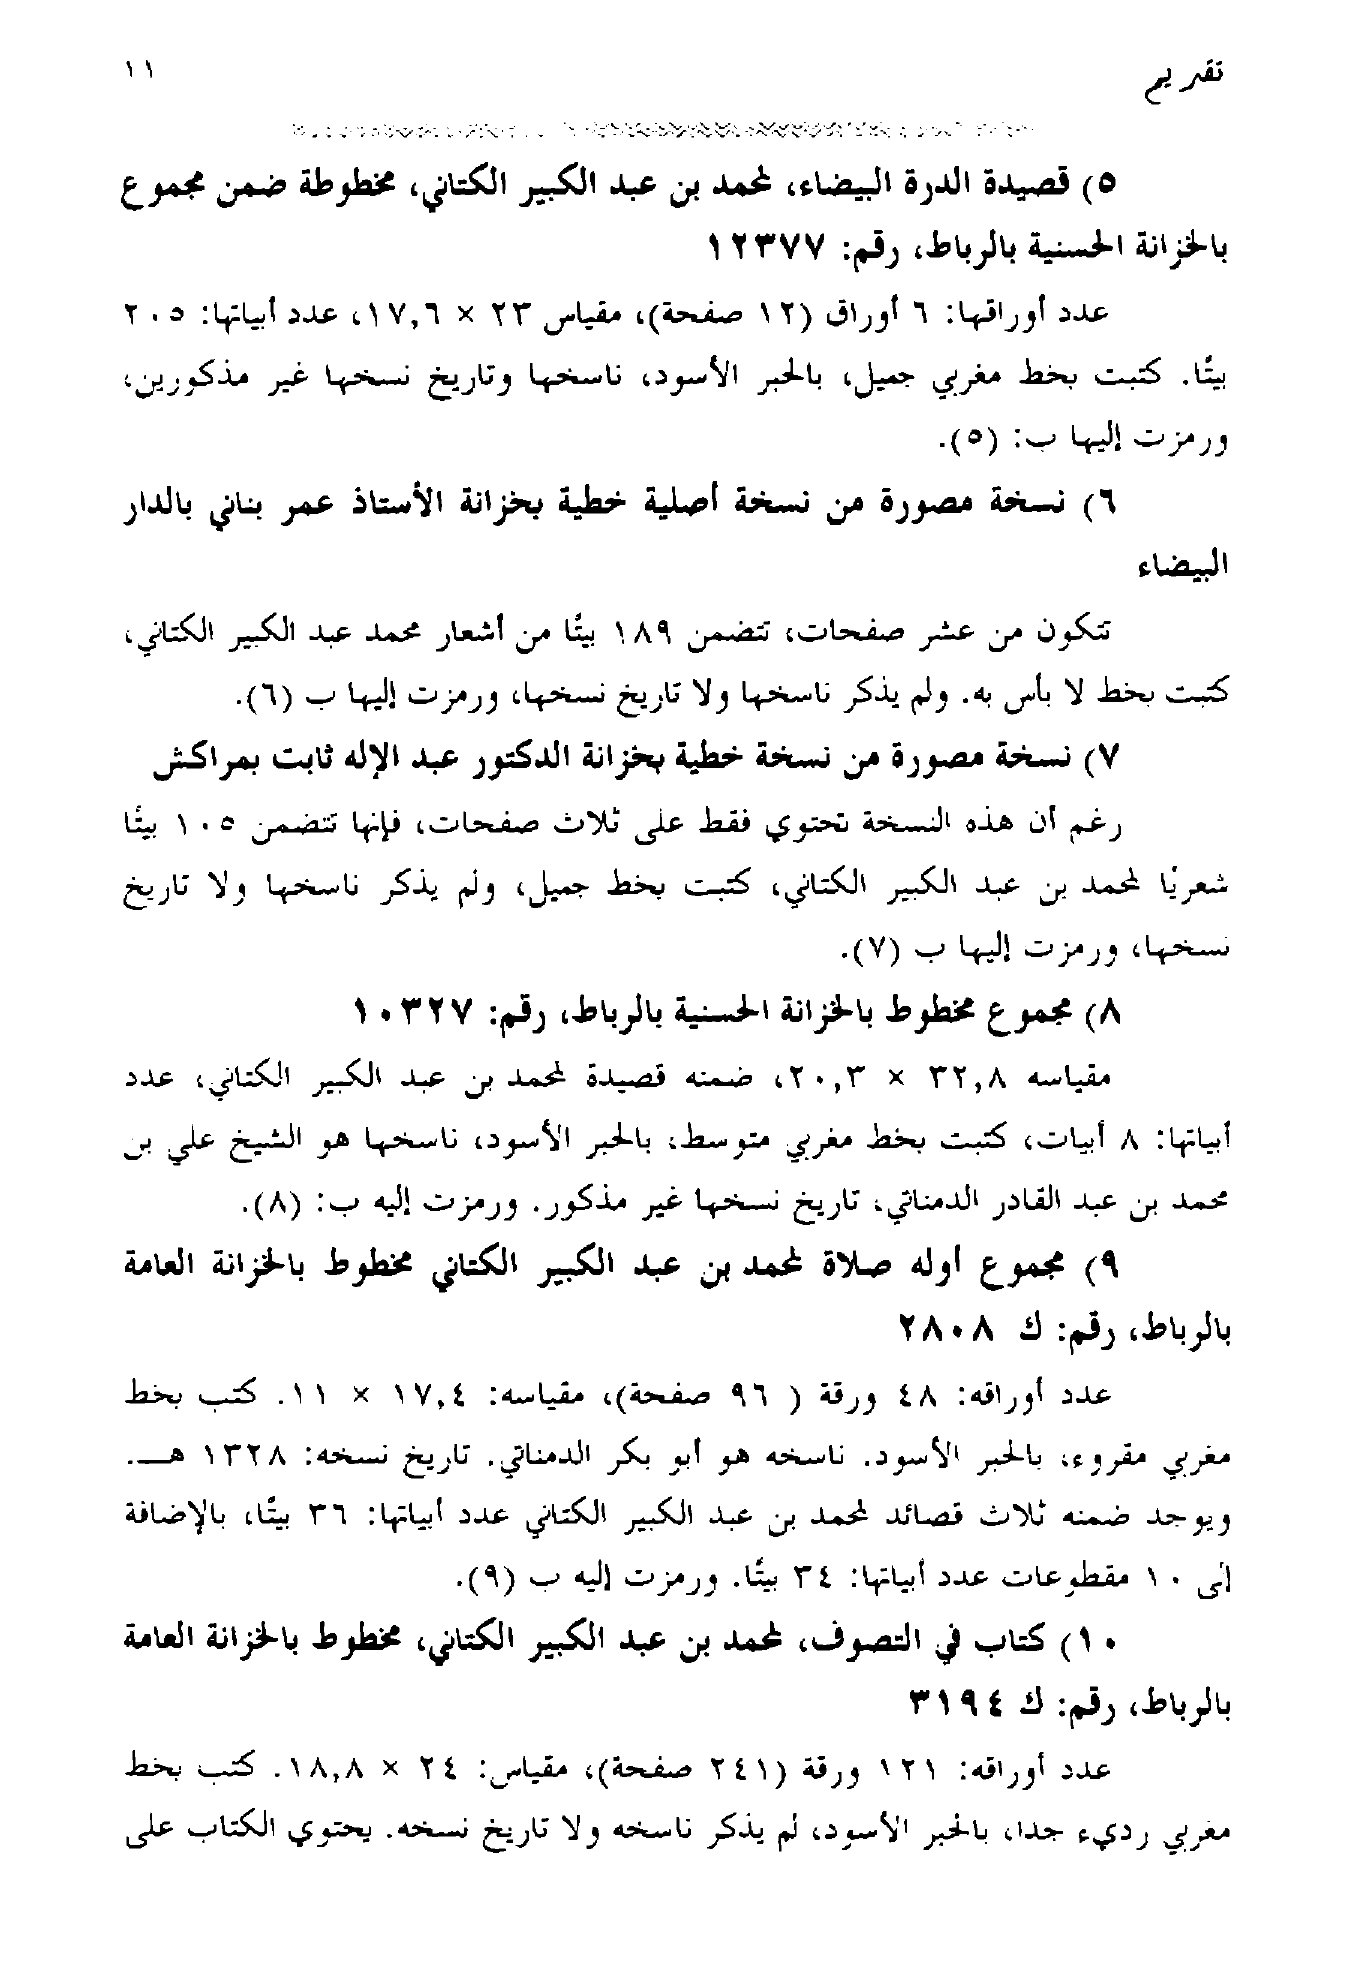 تقديم ١١
٥) قصيدة الدرة البيضاء، لمحمد بن عبد الكبير الكتاني، مخطوطة ضمن مجموع
بالخزانة الحسنية بالرباط، رقم: ١٢٣٧٧
عدد أوراقها: ٦ أوراق (١٢ صفحة)، مقياس ٢٣ × ١٧,٦، عدد أبياتها: ٢٠٥
بيتًا. كتبت بخط مغربي جميل، بالحبر الأسود، ناسخها وتاريخ نسخها غير مذكورين،
ورمزت إليها ب: (٥).
٦) نسخة مصورة من نسخة أصلية خطية بخزانة الأستاذ عمر بناني بالدار
البيضاء
تتكون من عشر صفحات، تتضمن ١٨٩ بيتًا من أشعار محمد عبد الكبير الكتاني،
كتبت بخط لا بأس به. ولم يذكر ناسخها ولا تاريخ نسخها، ورمزت إليها ب (٦).
٧) نسخة مصورة من نسخة خطية بخزانة الدكتور عبد الإله ثابت بمراكش
رغم أن هذه النسخة تحتوي فقط على ثلاث صفحات، فإنها تتضمن ١٠٥ بيتًا
شعريًا لمحمد بن عبد الكبير الكتاني، كتبت بخط جميل، ولم يذكر ناسخها ولا تاريخ
نسخها، ورمزت إليها ب (٧).
٨) مجموع مخطوط بالخزانة الحسنية بالرباط، رقم: ١٠٣٢٧
مقياسه ٣٢,٨ × ٢٠,٣، ضمنه قصيدة لمحمد بن عبد الكبير الكتاني، عدد
أبياتها: ٨ أبيات، كتبت بخط مغربي متوسط، بالحبر الأسود، ناسخها هو الشيخ علي بن
محمد بن عبد القادر الدمناتي، تاريخ نسخها غير مذكور. ورمزت إليه ب: (٨).
٩) مجموع أوله صلاة لمحمد بن عبد الكبير الكتاني مخطوط بالخزانة العامة
بالرباط، رقم: ك ٢٨٠٨
عدد أوراقه: ٤٨ ورقة ( ٩٦ صفحة)، مقياسه: ١٧,٤ × ١١. كتب بخط
مغربي مقروء، بالحبر الأسود. ناسخه هو أبو بكر الدمناتي. تاريخ نسخه: ١٣٢٨ هـ.
ويوجد ضمنه ثلاث قصائد لمحمد بن عبد الكبير الكتاني عدد أبياتها: ٣٦ بيتًا، بالإضافة
إلى ١٠ مقطوعات عدد أبياتها: ٣٤ بيتًا. ورمزت إليه ب (٩).
١٠) كتاب في التصوف، لمحمد بن عبد الكبير الكتاني، مخطوط بالخزانة العامة
بالرباط، رقم: ك ٣١٩٤
عدد أوراقه: ١٢١ ورقة (٢٤١ صفحة)، مقياس: ٢٤ × ١٨,٨. كتب بخط
مغربي رديء جدا، بالحبر الأسود، لم يذكر ناسخه ولا تاريخ نسخه. يحتوي الكتاب على